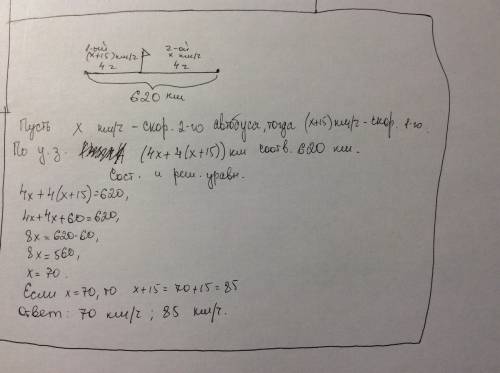 1-ый 2-ой
(x+15) км/ч x км/ч
4 ч 4 ч
620 км
Пусть x км/ч - скор. 2-го автобуса, тогда (x+15) км/ч - скор. 1-го.
По у.з. (4x+4(x+15)) км соотв. 620 км.
Сост. и реш. уравн.
4x+4(x+15)=620,
4x+4x+60=620,
8x=620-60,
8x=560,
x=70.
Если x=70, то x+15=70+15=85
Ответ: 70 км/ч; 85 км/ч.